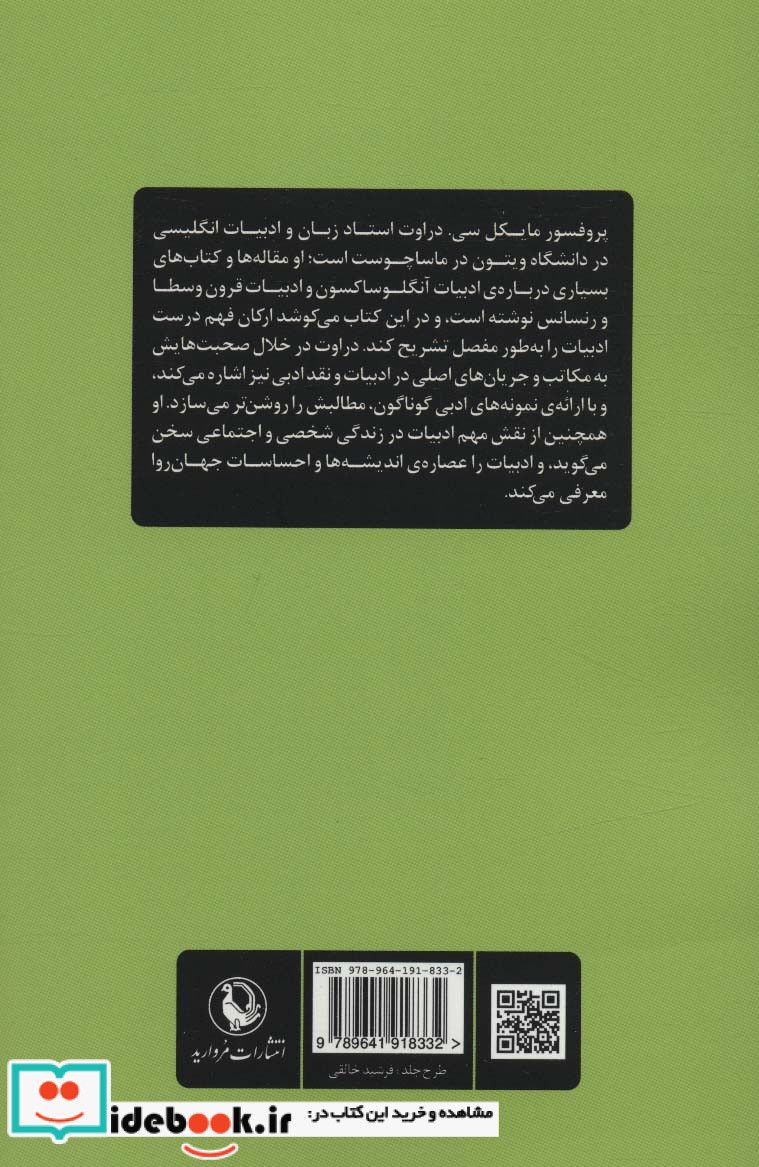 پروفسور مایکل سی. دراوت استاد زبان و ادبیات انگلیسی
در دانشگاه ویتون در ماساچوست است؛ او مقاله‌ها و کتاب‌های
بسیاری درباره‌ی ادبیات آنگلوساکسون و ادبیات قرون وسطا
و رنسانس نوشته است، و در این کتاب می‌کوشد ارکان فهم درست
ادبیات را به‌طور مفصل تشریح کند. دراوت در خلال صحبت‌هایش
به مکاتب و جریان‌های اصلی در ادبیات و نقد ادبی نیز اشاره می‌کند،
و با ارائه‌ی نمونه‌های ادبی گوناگون، مطالبش را روشن‌تر می‌سازد. او
همچنین از نقش مهم ادبیات در زندگی شخصی و اجتماعی سخن
می‌گوید، و ادبیات را عصاره‌ی اندیشه‌ها و احساسات جهان‌روا
معرفی می‌کند.
ISBN 978-964-191-833-2
9 789641 918332 >
طرح جلد: فرشید خالقی
انتشارات مروارید
مشاهده و خرید این کتاب در:
idebook.ir